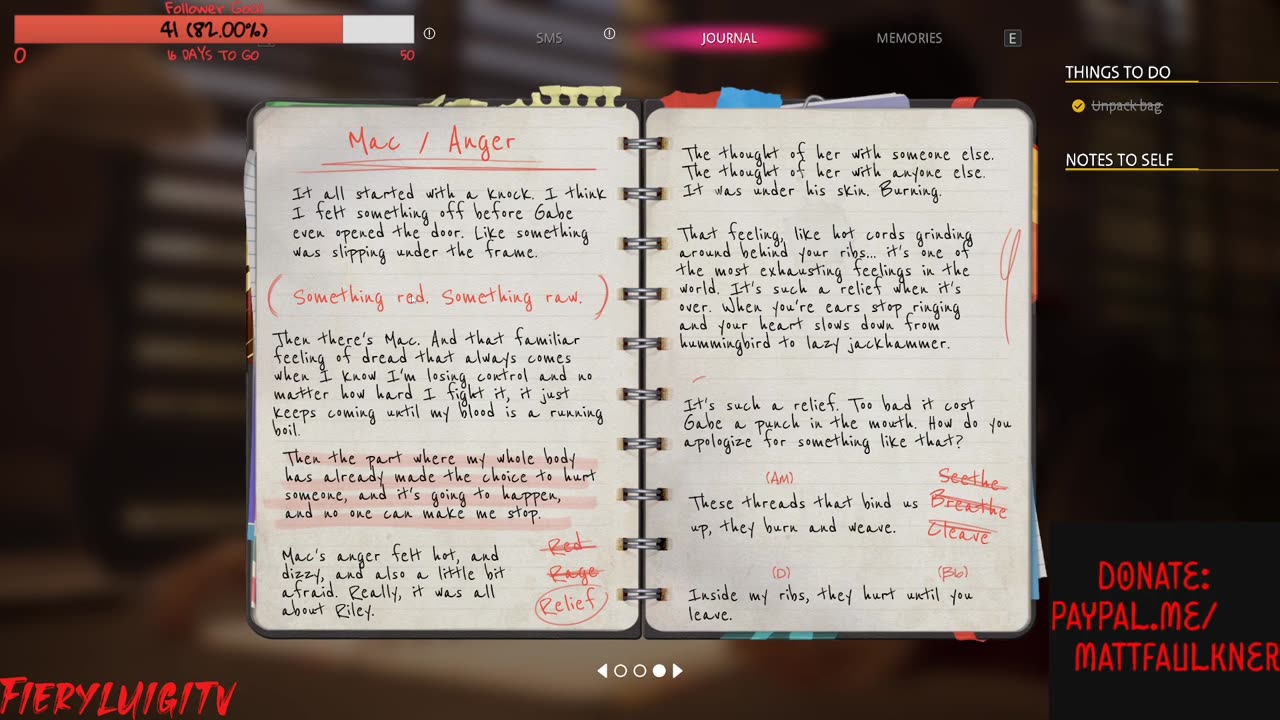 Follower Goal
41 (82.00%)
0
16 DAYS TO GO
50
SMS
JOURNAL
MEMORIES
E
THINGS TO DO
Unpack bag
NOTES TO SELF
Mac / Anger
It all started with a knock. I think
I felt something off before Gabe
even opened the door. Like something
was slipping under the frame.
(Something red. Something raw.)
Then there's Mac. And that familiar
feeling of dread that always comes
when I know I'm losing control and no
matter how hard I fight it, it just
keeps coming until my blood is a running
boil.
Then the part where my whole body
has already made the choice to hurt
someone, and it's going to happen,
and no one can make me stop.
Mac's anger felt hot, and
dizzy, and also a little bit
afraid. Really, it was all
about Riley.
Red
Rage
Relief
The thought of her with someone else.
The thought of her with anyone else.
It was under his skin. Burning.
That feeling, like hot cords grinding
around behind your ribs... it's one of
the most exhausting feelings in the
world. It's such a relief when it's
over. When you're ears stop ringing
and your heart slows down from
hummingbird to lazy jackhammer.
It's such a relief. Too bad it cost
Gabe a punch in the mouth. How do you
apologize for something like that?
(Am)
These threads that bind us
up, they burn and weave.
Seethe
Breathe
Cleave
(D) (Bb)
Inside my ribs, they hurt until you
leave.
FIERYLUIGITV
DONATE:
PAYPAL.ME/
MATTFAULKNER